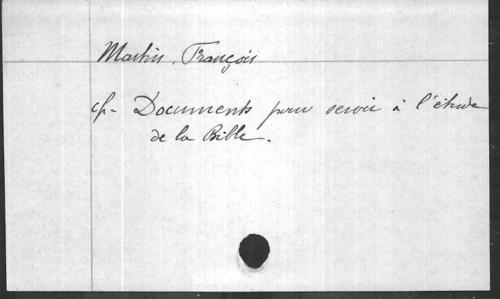 Martin, François
cf. Documents pour servir à l'étude
de la Bible.